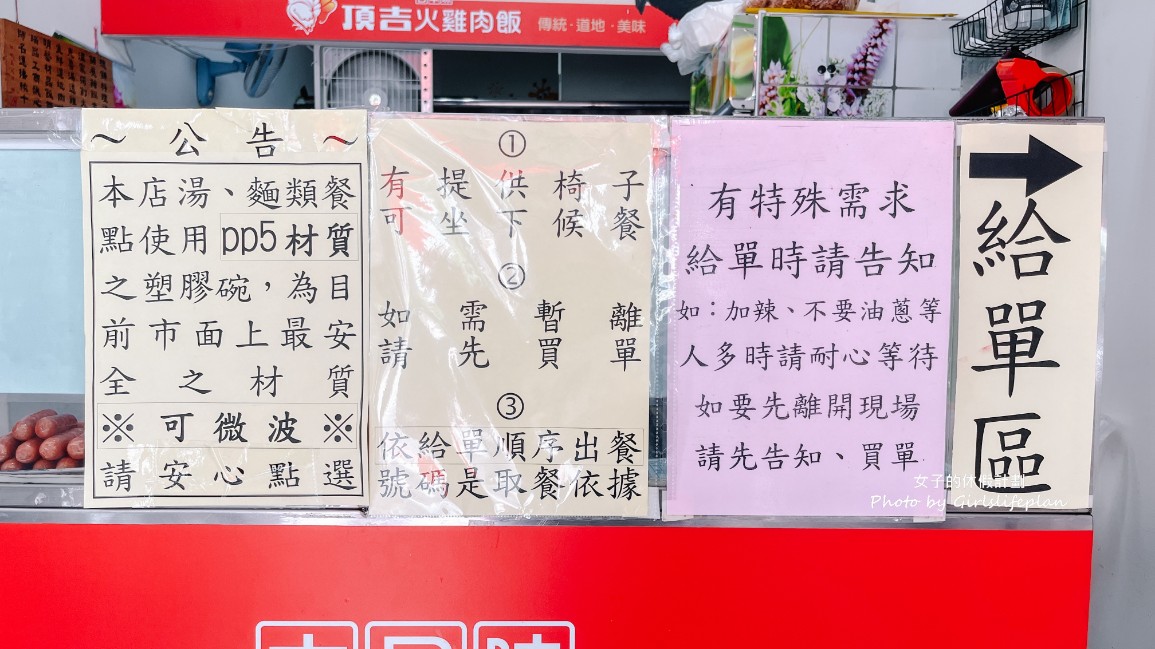 頂吉火雞肉飯 傳統·道地·美味
～公告～
本店湯、麵類餐
點使用pp5材質
之塑膠碗，為目
前市面上最安
全之材質
※可微波※
請安心點選
①
有提供椅子
可坐下候餐
②
如需暫離
請先買單
③
依給單順序出餐
號碼是取餐依據
有特殊需求
給單時請告知
如：加辣、不要油蔥等
人多時請耐心等待
如要先離開現場
請先告知、買單
→
給單區
女子的休假計劃
Photo by Girlslifeplan